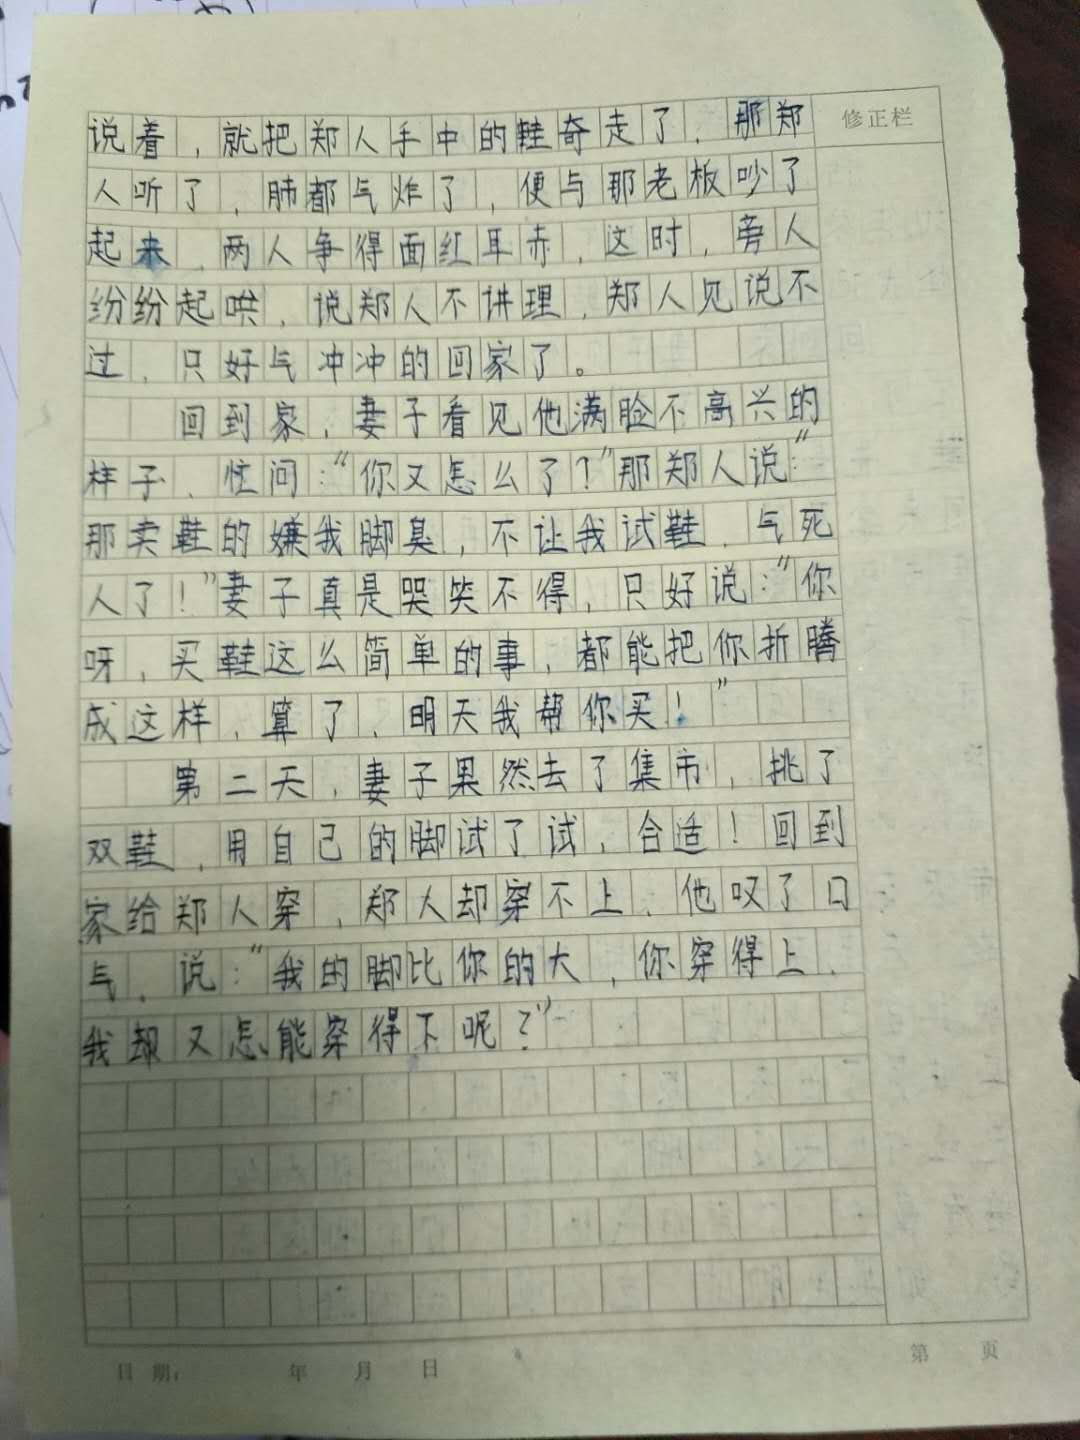 修正栏
说着，就把郑人手中的鞋奇走了，那郑
人听了，肺都气炸了，便与那老板吵了
起来，两人争得面红耳赤，这时，旁人
纷纷起哄，说郑人不讲理，郑人见说不
过，只好气冲冲的回家了。
回到家，妻子看见他满脸不高兴的
样子、忙问：“你又怎么了？”那郑人说：“
那卖鞋的嫌我脚臭，不让我试鞋，气死
人了！”妻子真是哭笑不得，只好说：“你
呀，买鞋这么简单的事，都能把你折腾
成这样，算了，明天我帮你买！”
第二天，妻子果然去了集市，挑了
双鞋，用自己的脚试了试，合适！回到
家给郑人穿，郑人却穿不上，他叹了口
气，说：“我的脚比你的大，你穿得上，
我却又怎能穿得下呢？”
日期： 年 月 日
第 页